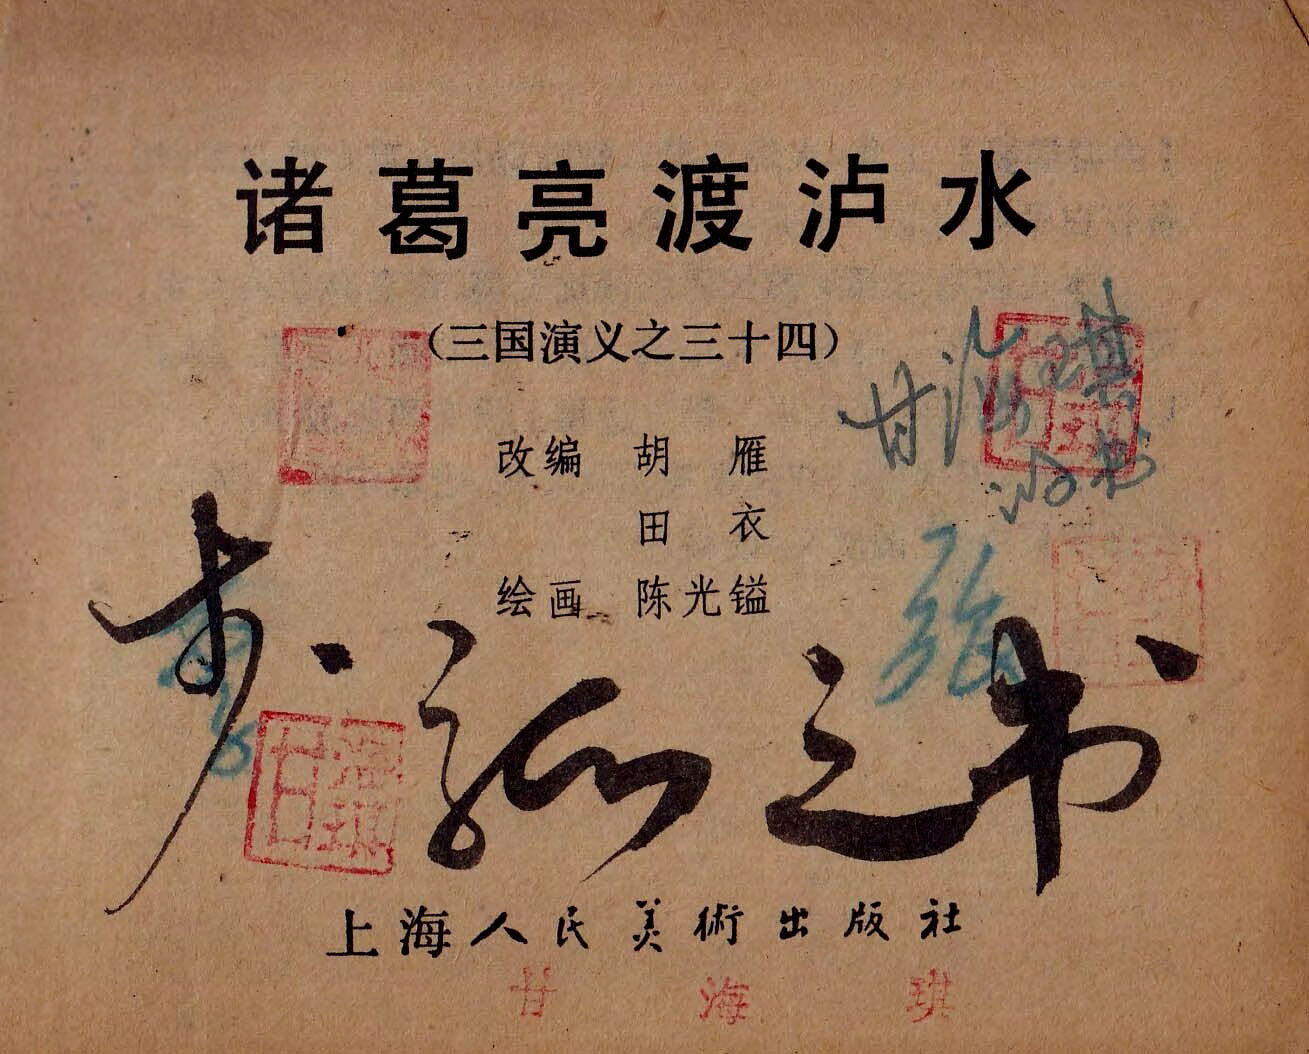 诸葛亮渡泸水
（三国演义之三十四）
改编 胡 雁
田 衣
绘画 陈光镒
甘海琪
之书
甘海琪
上海人民美術出版社
甘海琪